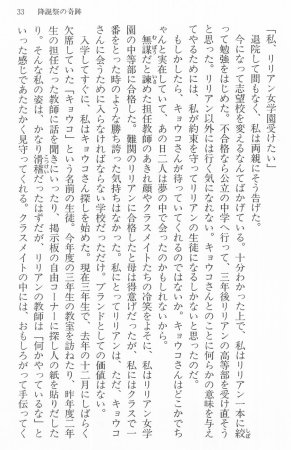 33　降誕祭の奇跡
「私、リリアン女学園受けたい」
　退院して間もなく、私は両親にそう告げた。
　今になって志望校を変えるなんてばかげている。十分わかった上で、私はリリアン一本に絞
って勉強をはじめた。不合格なら公立の中学へ行って、三年後リリアンの高等部を受け直そう
と思った。リリアン以外には行く気になれない。キョウコさんとのことに何らかの意味を与え
てやるためには、私が約束を守ってリリアンの生徒になるしかないと思ったのだ。
　もしかしたら、キョウコさんが待っていてくれるのではないか。キョウコさんはどこかでち
ゃんと実在していて、あの日二人は夢の中で会ったのかもしれないから。
　無謀だと諫めた担任教師のあきれ顔やクラスメイトたちの冷笑をよそに、私はリリアン女学
園の中等部に合格した。難関のリリアンに合格したと母は得意げだったが、私にはクラスで一
番をとった時のような勝ち誇った気持ちはなかった。私にとってリリアンは、ただ、キョウコ
さんに会うために入らなければならない学校だっただけだ。ブランドとしての価値はない。
　入学してすぐに、私はキョウコさん探しを始めた。現在三年生で、去年の十二月にしばらく
欠席していた「キョウコ」という名前の生徒。今年度の三年生の教室を訪ねたり、昨年度二年
生の担任だった教師に話を聞きにいったり、掲示板の自由コーナーに探し人の紙を貼りだした
り。そんな私の姿は、かなり滑稽だったはずだが、リリアンの教師は「何かやっているな」と
いった感じであたたかく見守ってくれる。クラスメイトの中には、おもしろがって手伝ってく